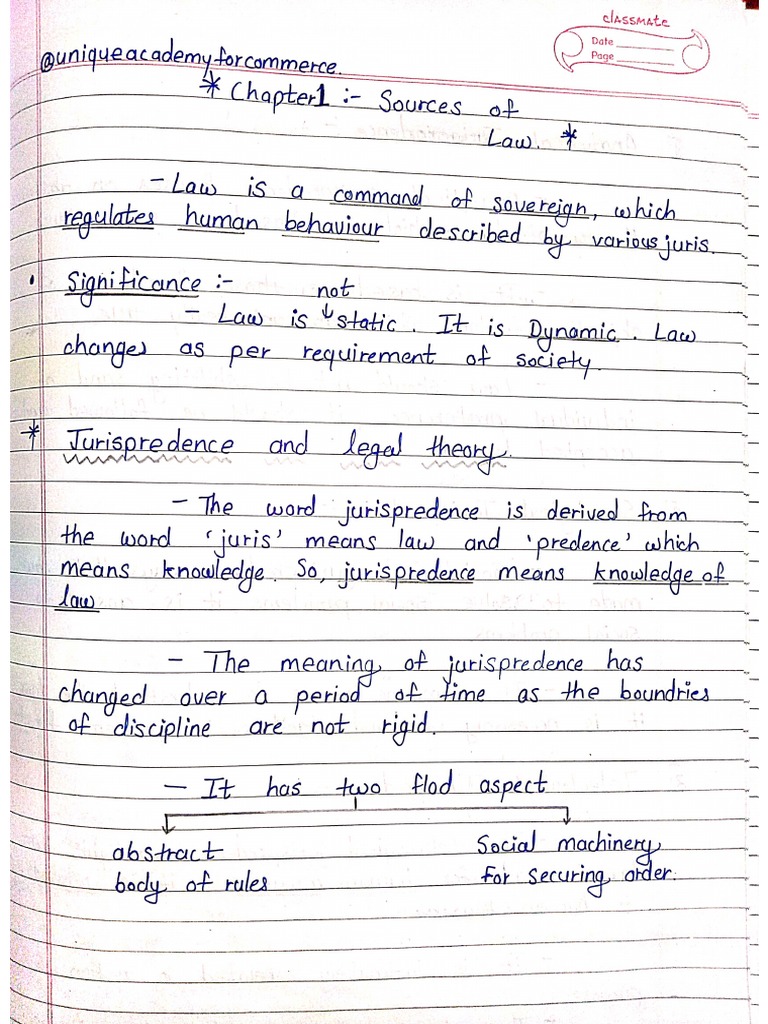 classmate
Date
Page
@uniqueacademyforcommerce.
* Chapter1 :- Sources of
Law. *
- Law is a command of sovereign, which
regulates human behaviour described by various juris.
• Significance :-
not
- Law is ↓ static. It is Dynamic. Law
changes as per requirement of society.
* Jurispredence and legal theory.
- The word jurispredence is derived from
the word 'juris' means law and 'predence' which
means knowledge. So, jurispredence means knowledge of
law
- The meaning of jurispredence has
changed over a period of time as the boundries
of discipline are not rigid.
- It has two flod aspect
abstract
body of rules
Social machinery
for securing order.